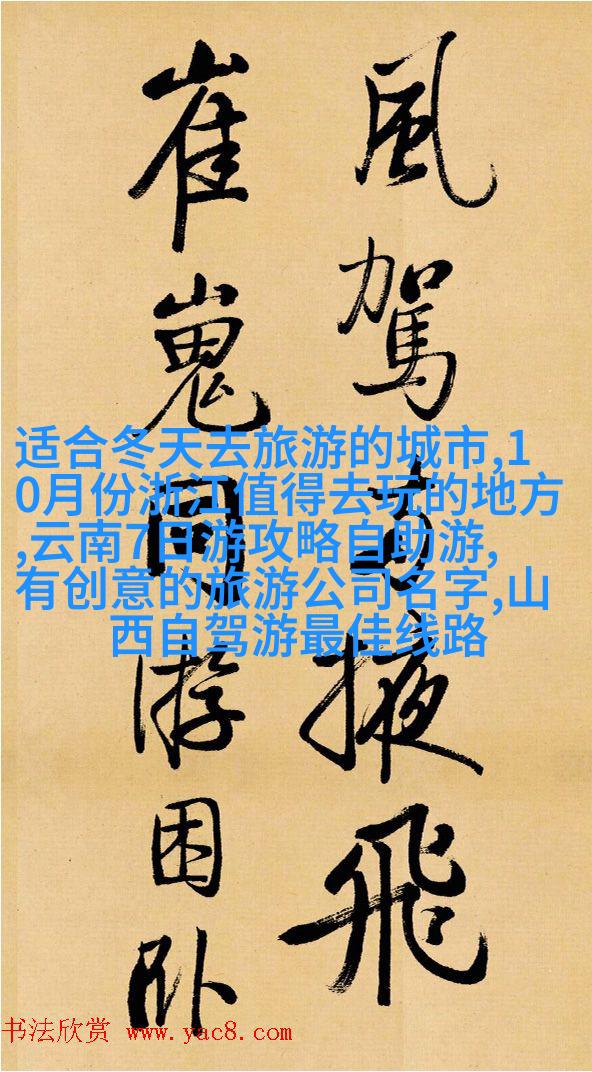 風駕掖飛
崔嵬同游困卧
适合冬天去旅游的城市,1
0月份浙江值得去玩的地方
,云南7日游攻略自助游,
有创意的旅游公司名字,山
西自驾游最佳线路
书法欣赏 www.yac8.com